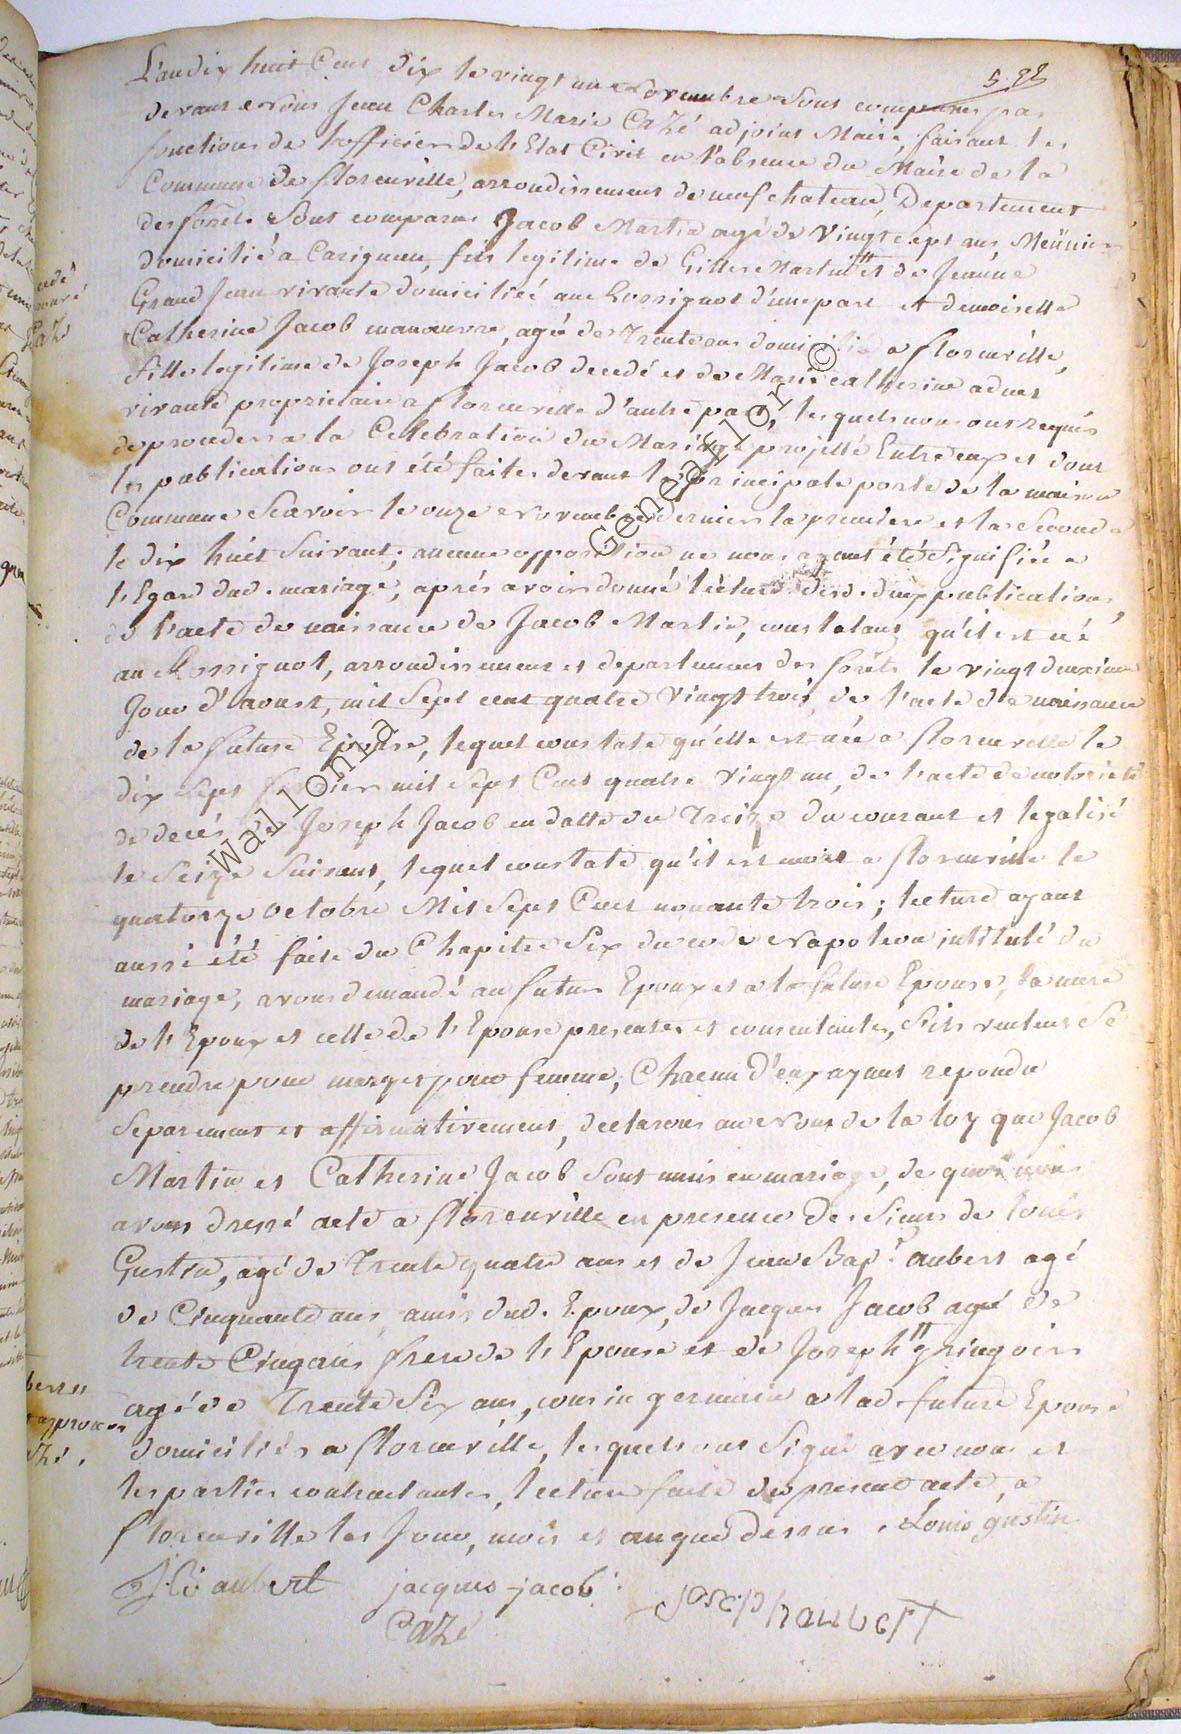 5. 98
L'an dix huit Cent dix le vingt un Novembre Sont comparus par
devant Nous Jean Charles Marie CaZé adjoint Maire, faisant les
fonctions de L'officier de l'Etat Civil en l'absence du Maire de la
Commune de florenville, arrondissement de neufchateau, Departement
des forêts Sont comparus Jacob Martin agé de Vingt sept ans, Meünier
domicilié a Carignan, fils legitime de Gilles Martin et de Jeanne
Grand Jean vivante domiciliéé au Rossignol d'une part et demoiselle
Catherine Jacob manoeuvre, agé de Trente ans domiciliée a florenville,
fille legitime de Joseph Jacob decedé et de Marie catherine adnet
vivante propriétaire a florenville d'autre part, lesquels nous ont requis
de proceder a la Celebration du Mariage projetté Entre eux et dont
les publications ont été faites devant la principale porte de la maison
Commune Scavoir le onze Novembre dernier la premiere et la seconde
le dix huit Suivant; aucune opposition ne nous ayant été Signifiée a
l'Egard dud. mariage, aprés avoir donné lécture desd. deux publications,
de l'acte de naissance de Jacob Martin, constatant qu'il est né
au Rossignol, arrondissement et departement des forêts le vingt deuxieme
Jour d'aoust, mil Sept cent quatre Vingt trois, de l'acte de naissance
de la future Epouse, lequel constate qu'elle est née a florenville le
dix Sept fevrier mil Sept Cent quatre Vingt un, de l'acte de notorieté
de decés de Joseph Jacob en datte du Treize du courant et legalisé
le Seize Suivant, lequel constate qu'il est mort a florenville le
quatorze octobre Mil Sept Cent nonante trois; lecture ayant
aussi été faite du Chapitre Six du code Napoleon intitulé du
mariage, avons demandé au futur Epoux et a la future Epouse, la mere
de l'Epoux et celle de l'Epouse presentes et consentantes, S'ils veulent Se
prendre pour mary et pour femme, Chacun d'eux ayant repondu
Separement et affirmativement, declarons au Nom de la loy que Jacob
Martin et Catherine Jacob Sont unis en mariage, de quoi nous
avons dressé acte a florenville en presence des Sieurs de Louis
Gustin, agé de Trente quatre ans et de Jean Bapt. aubert agé
de Cinquante ans amis dud. Epoux, de Jacques Jacob agé de
trente Cinq ans frere de l'Epouse et de Joseph gringoire
agé de Trente Six ans, cousin germain a lad. future Epouse
domiciliés a florenville, lesquels ont Signé avec nous et
les parties contractantes, lecture faite du present acte, a
florenville les Jour, mois et an que dessus. Louis gustin
J: B: aubert jacques-jacob
CaZé
Wallonia Geneaflor ©